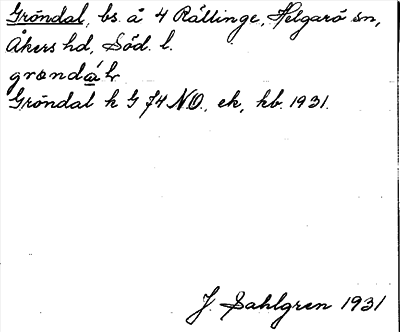 Gröndal, bs. å 4 Rällinge, Helgarö sn,
Åkers hd, Söd. l.
grøndá̱l
Gröndal k G 74 NO., ek, hb. 1931.
J. Sahlgren 1931